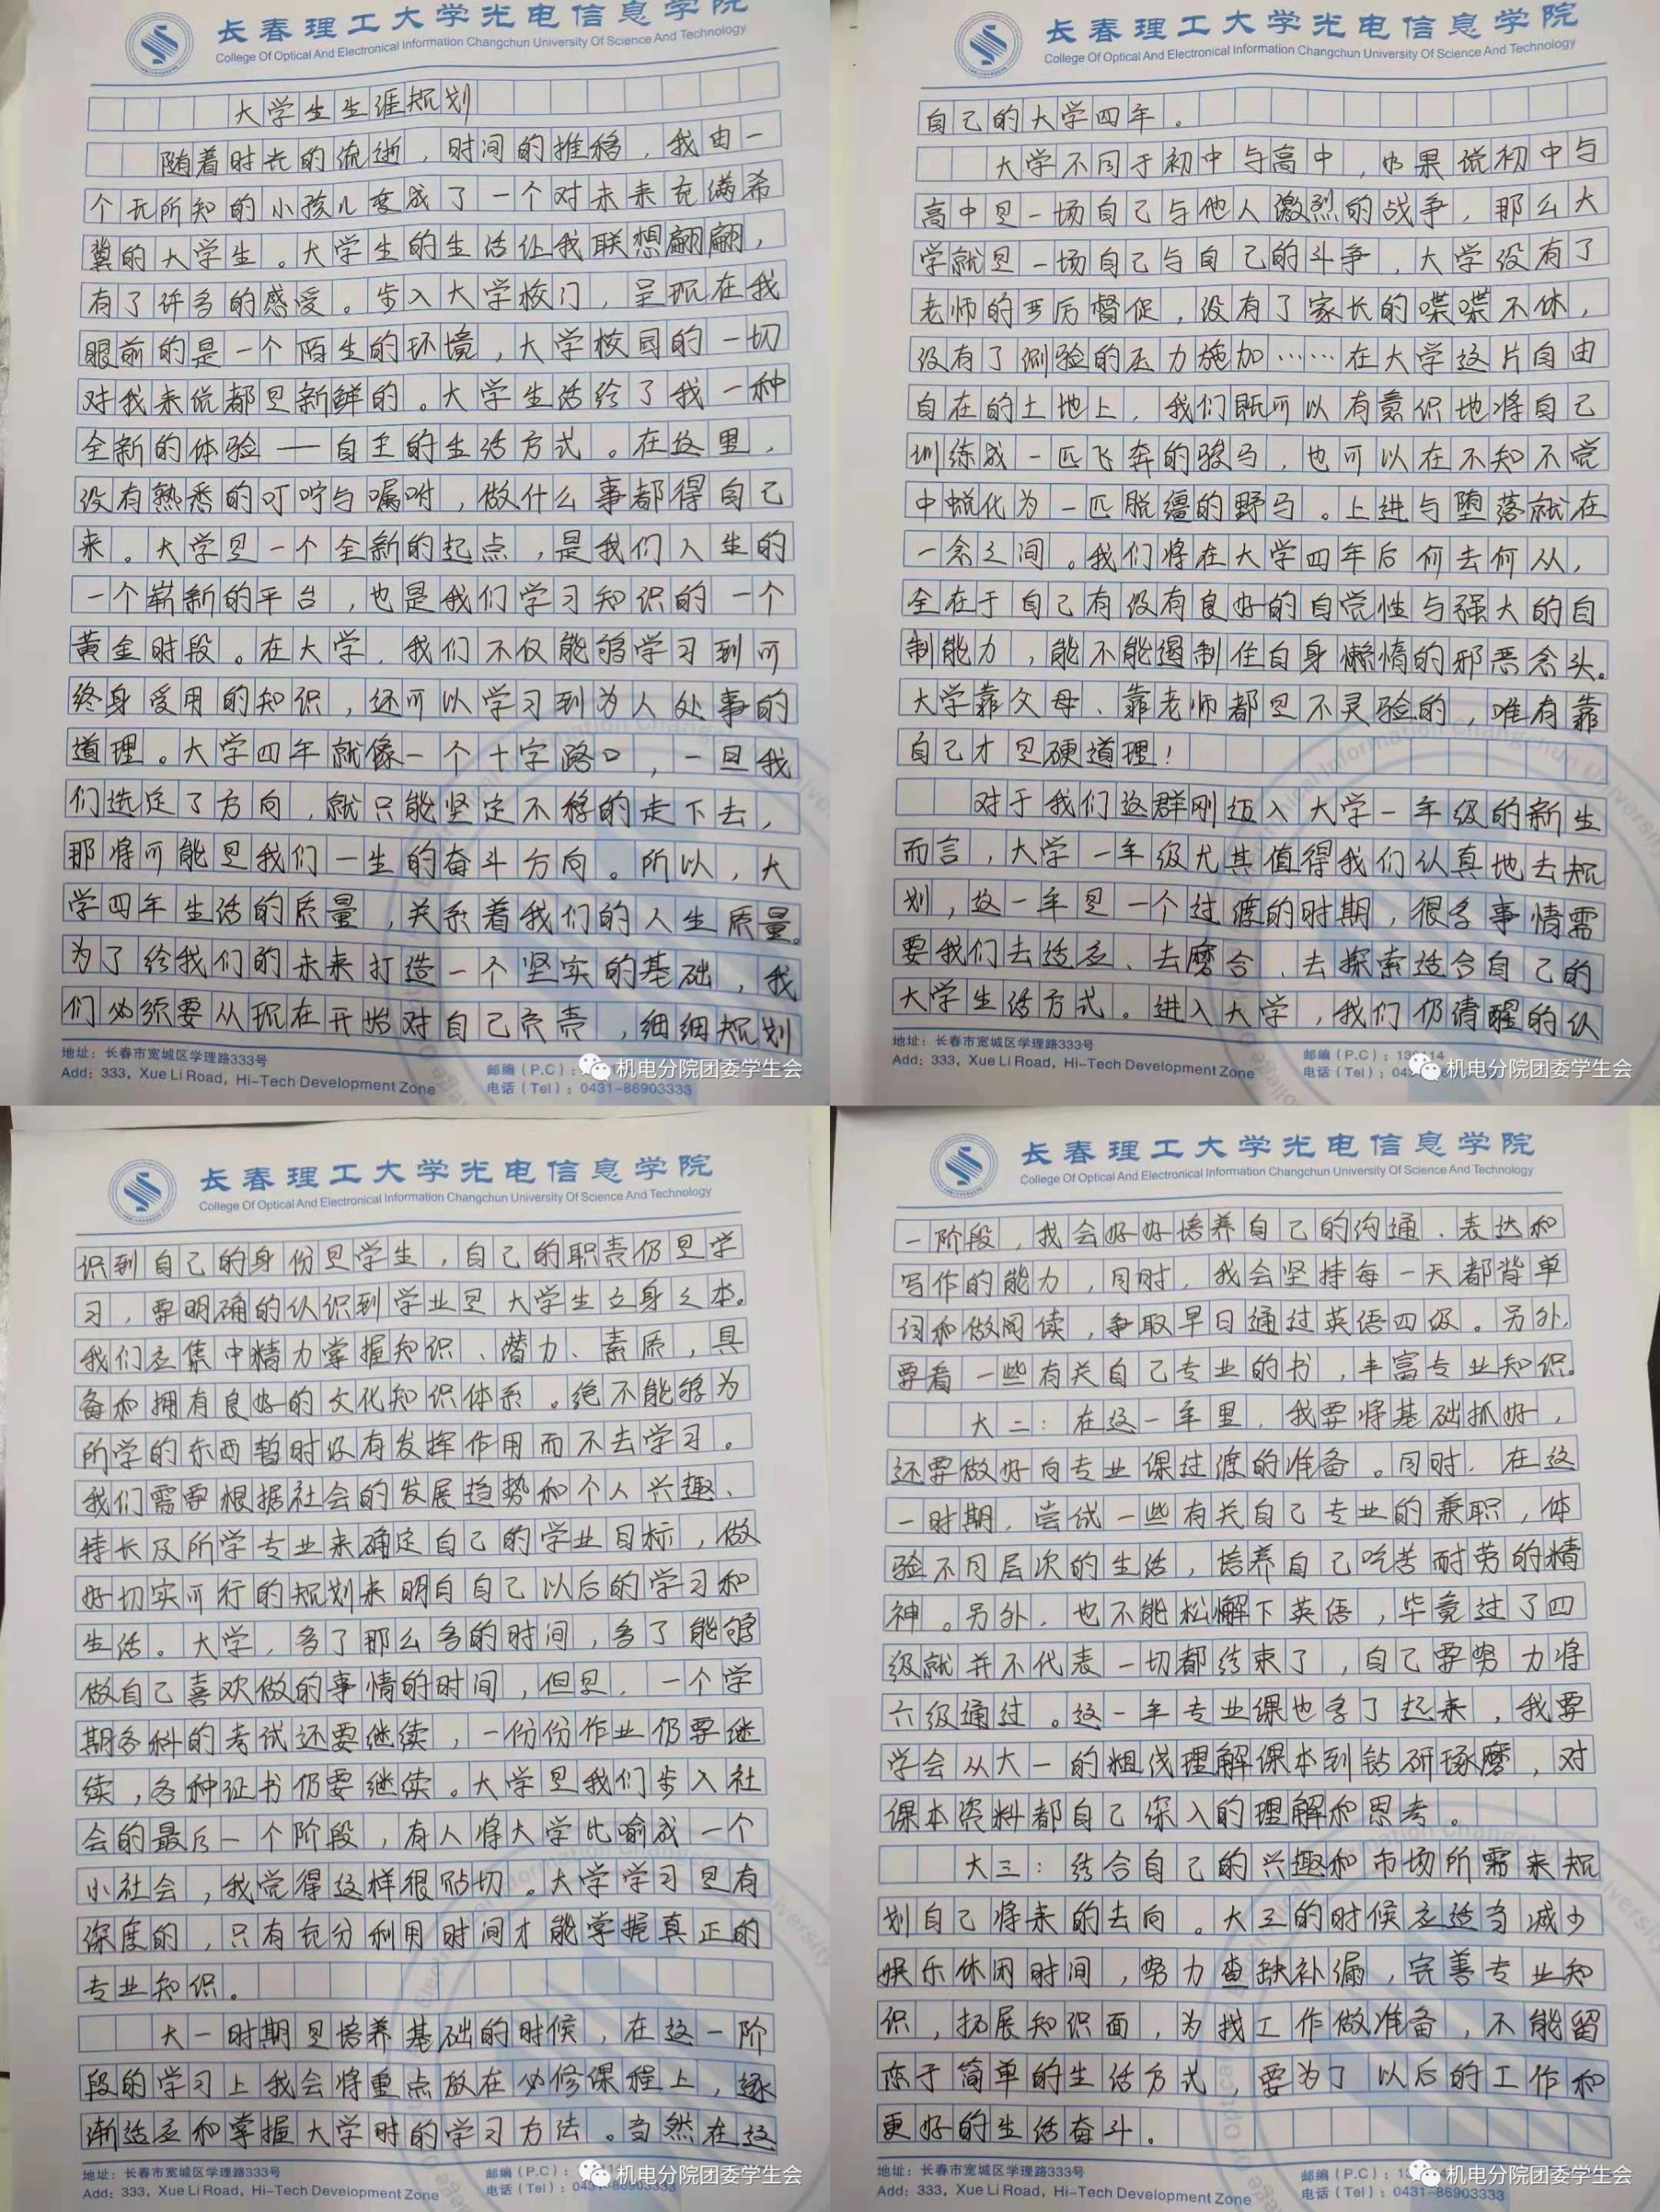 长春理工大学光电信息学院
College Of Optical And Electronical Information Changchun University Of Science And Technology
大学生生涯规划
随着时光的流逝，时间的推移，我由一
个无所知的小孩儿变成了一个对未来充满希
冀的大学生。大学生的生活让我联想翩翩，
有了许多的感受。步入大学校门，呈现在我
眼前的是一个陌生的环境，大学校园的一切
对我来说都是新鲜的。大学生活给了我一种
全新的体验——自主的生活方式。在这里，
没有熟悉的叮咛与嘱咐，做什么事都得自己
来。大学是一个全新的起点，是我们人生的
一个崭新的平台，也是我们学习知识的一个
黄金时段。在大学，我们不仅能够学习到可
终身受用的知识，还可以学习到为人处事的
道理。大学四年就像一个十字路口，一旦我
们选定了方向，就只能坚定不移的走下去，
那将可能是我们一生的奋斗方向。所以，大
学四年生活的质量，关系着我们的人生质量。
为了给我们的未来打造一个坚实的基础，我
们必须要从现在开始对自己负责，细细规划
地址：长春市宽城区学理路333号
Add: 333, Xue Li Road, Hi-Tech Development Zone
邮编（P.C）:
电话（Tel）: 0431-86903333
机电分院团委学生会
长春理工大学光电信息学院
College Of Optical And Electronical Information Changchun University Of Science And Technology
自己的大学四年。
大学不同于初中与高中，如果说初中与
高中是一场自己与他人激烈的战争，那么大
学就是一场自己与自己的斗争，大学没有了
老师的严厉督促，没有了家长的喋喋不休，
没有了测验的压力施加……在大学这片自由
自在的土地上，我们既可以有意识地将自己
训练成一匹飞奔的骏马，也可以在不知不觉
中蜕化为一匹脱缰的野马。上进与堕落就在
一念之间。我们将在大学四年后何去何从，
全在于自己有没有良好的自觉性与强大的自
制能力，能不能遏制住自身懒惰的邪恶念头。
大学靠父母、靠老师都是不灵验的，唯有靠
自己才是硬道理！
对于我们这群刚迈入大学一年级的新生
而言，大学一年级尤其值得我们认真地去规
划，这一年是一个过渡的时期，很多事情需
要我们去适应、去磨合、去探索适合自己的
大学生活方式。进入大学，我们仍请醒的认
地址：长春市宽城区学理路333号
Add: 333, Xue Li Road, Hi-Tech Development Zone
邮编（P.C）:
电话（Tel）:
机电分院团委学生会
长春理工大学光电信息学院
College Of Optical And Electronical Information Changchun University Of Science And Technology
识到自己的身份是学生，自己的职责仍是学
习，要明确的认识到学业是大学生立身之本。
我们应集中精力掌握知识、潜力、素质，具
备和拥有良好的文化知识体系。绝不能够为
所学的东西暂时没有发挥作用而不去学习。
我们需要根据社会的发展趋势和个人兴趣、
特长及所学专业来确定自己的学业目标，做
好切实可行的规划来明白自己以后的学习和
生活。大学，多了那么多的时间，多了能够
做自己喜欢做的事情的时间，但是，一个学
期各科的考试还要继续，一份份作业仍要继
续，各种证书仍要继续。大学是我们步入社
会的最后一个阶段，有人将大学比喻成一个
小社会，我觉得这样很贴切。大学学习是有
深度的，只有充分利用时间才能掌握真正的
专业知识。
大一时期是培养基础的时候，在这一阶
段的学习上我会将重点放在必修课程上，逐
渐适应和掌握大学时的学习方法。当然在这
地址：长春市宽城区学理路333号
Add: 333, Xue Li Road, Hi-Tech Development Zone
邮编（P.C）:
电话（Tel）: 0431-86903333
机电分院团委学生会
长春理工大学光电信息学院
College Of Optical And Electronical Information Changchun University Of Science And Technology
一阶段，我会好好培养自己的沟通、表达和
写作的能力，同时，我会坚持每一天都背单
词和做阅读，争取早日通过英语四级。另外，
要看一些有关自己专业的书，丰富专业知识。
大二：在这一年里，我要将基础抓好，
还要做好向专业课过渡的准备。同时，在这
一时期，尝试一些有关自己专业的兼职，体
验不同层次的生活，培养自己吃苦耐劳的精
神。另外，也不能松懈下英语，毕竟过了四
级就并不代表一切都结束了，自己要努力将
六级通过。这一年专业课也多了起来，我要
学会从大一的粗浅理解课本到钻研琢磨，对
课本资料都自己深入的理解和思考。
大三：结合自己的兴趣和市场所需来规
划自己将来的去向。大三的时候应适当减少
娱乐休闲时间，努力查缺补漏，完善专业知
识，拓展知识面，为找工作做准备，不能留
恋于简单的生活方式，要为了以后的工作和
更好的生活奋斗。
地址：长春市宽城区学理路333号
Add: 333, Xue Li Road, Hi-Tech Development Zone
邮编（P.C）:
电话（Tel）: 0431-86903333
机电分院团委学生会